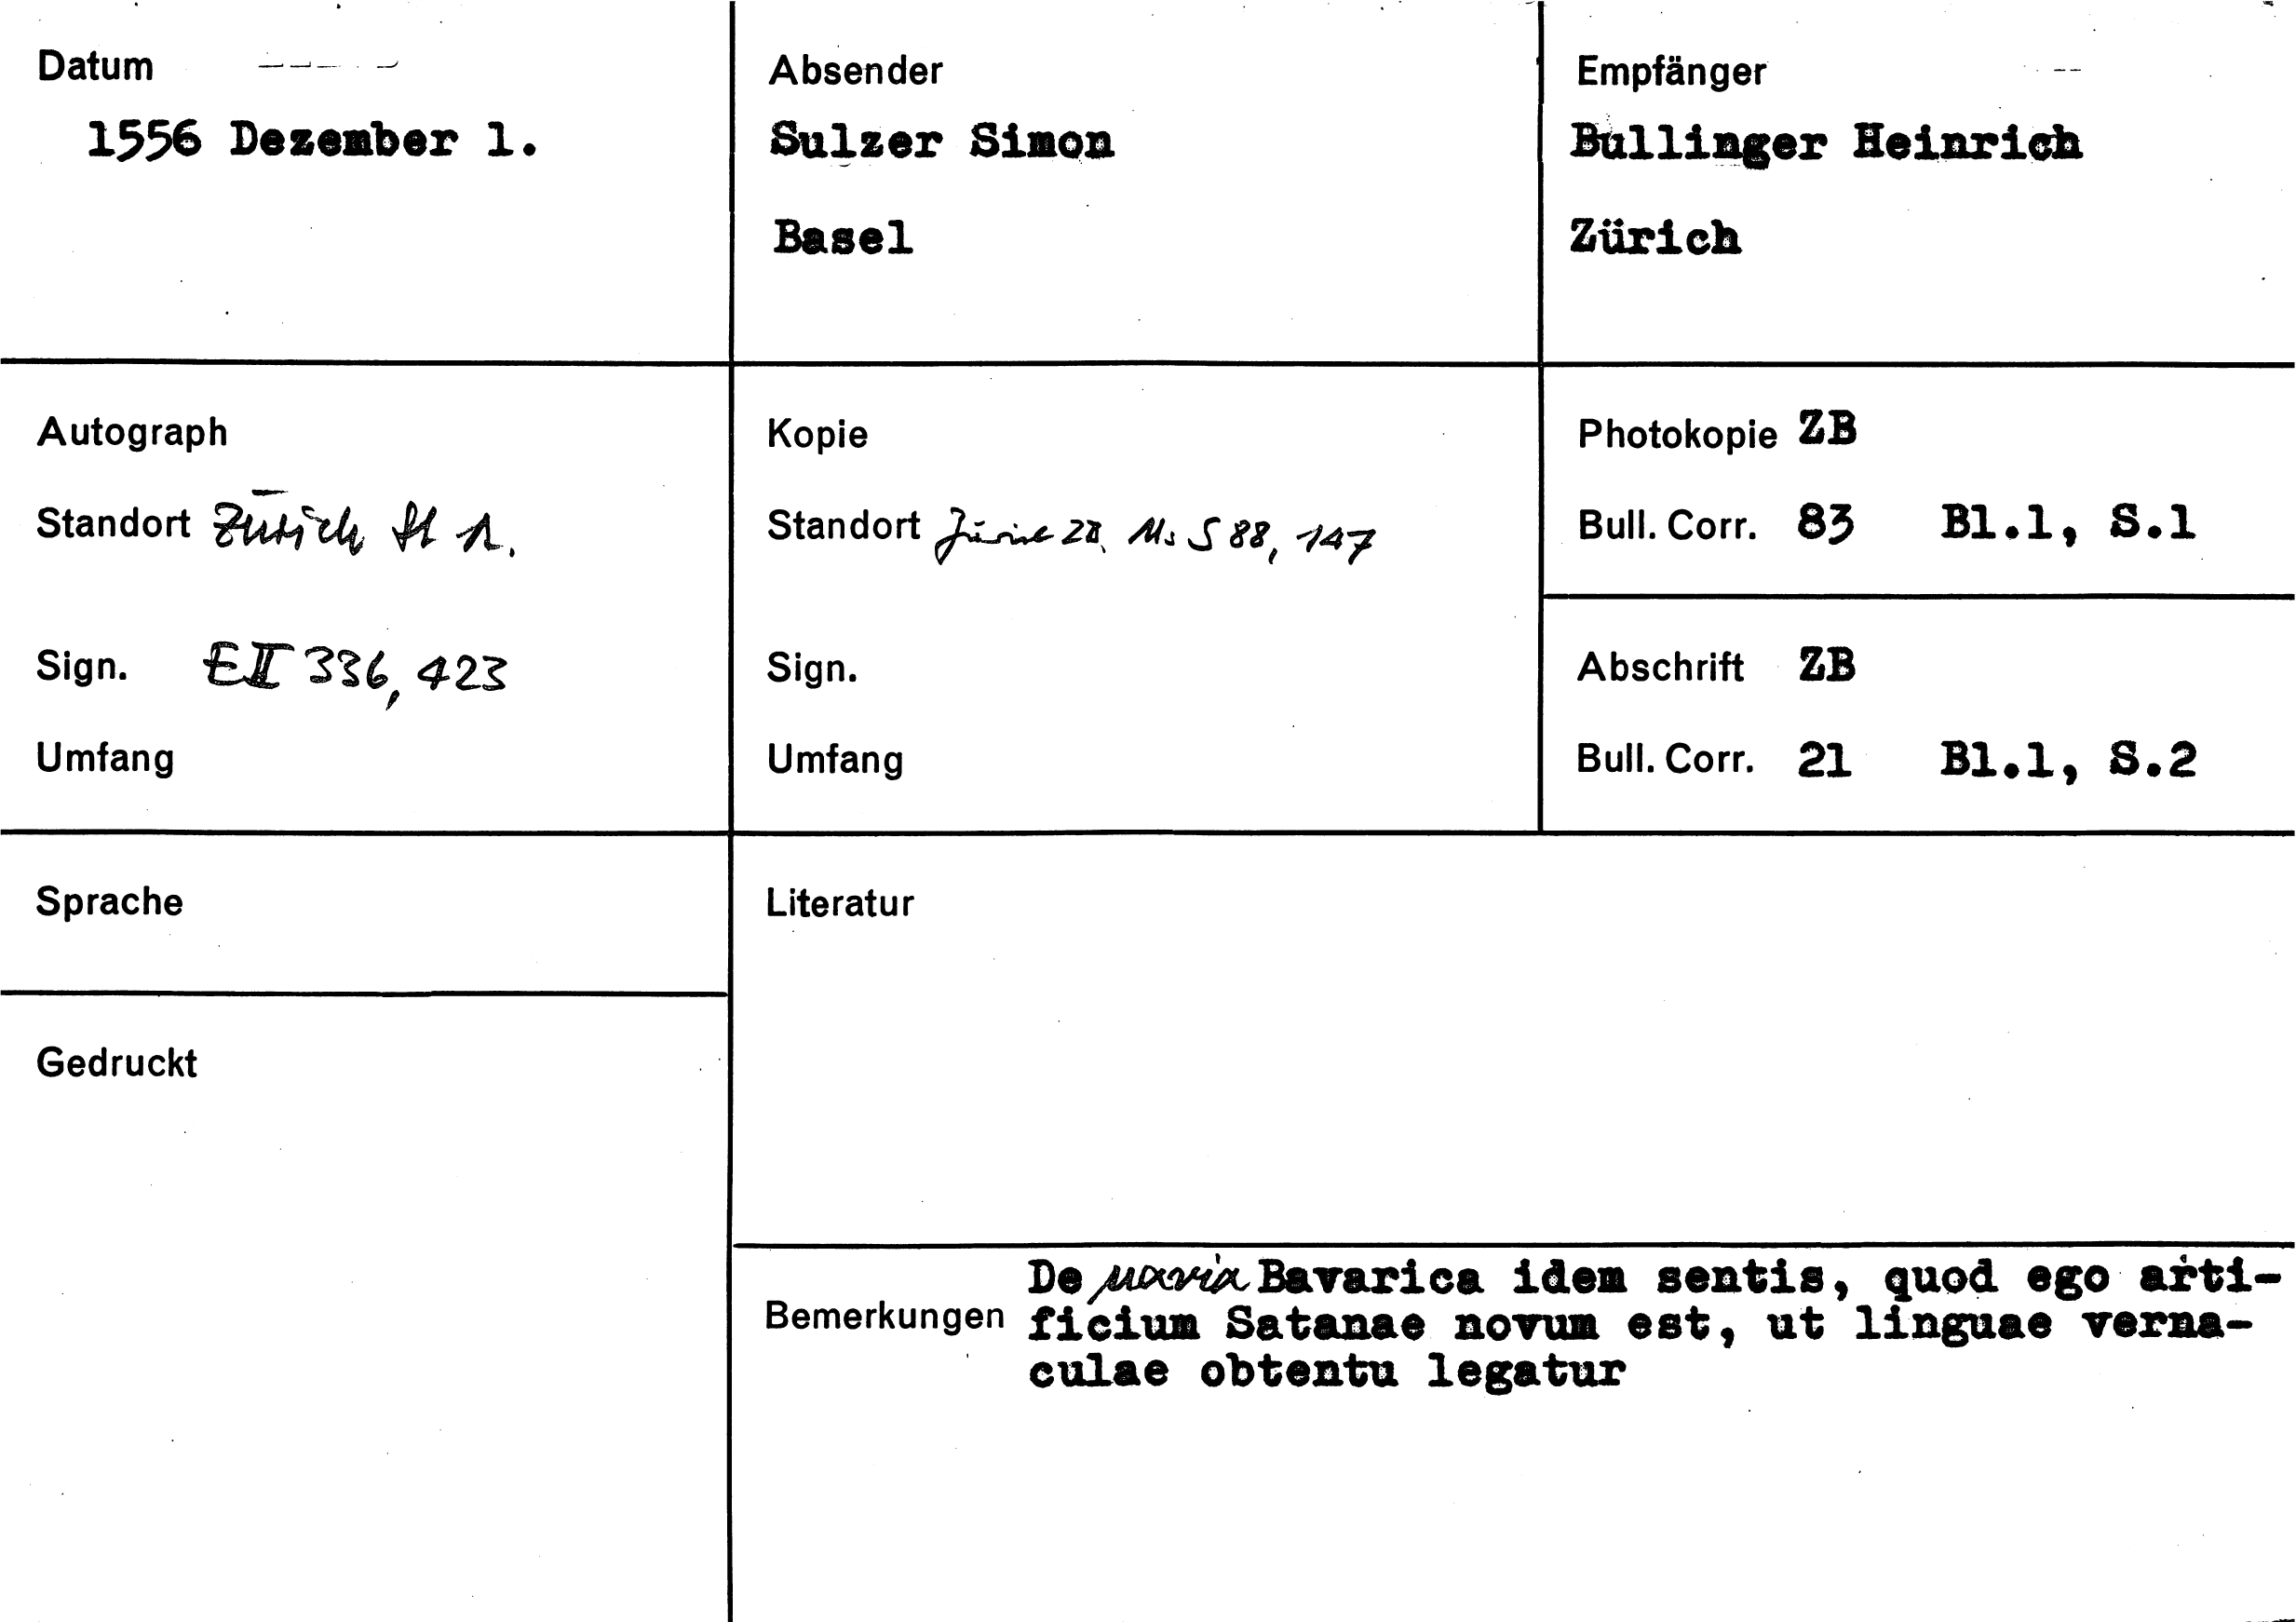 Datum
1556 Dezember 1.
Absender
Sulzer Simon
Basel
Empfänger
Bullinger Heinrich
Zürich
Autograph
Standort Zürich StA.
Sign. EII 336, 423
Umfang
Kopie
Standort Zürich ZB, Ms S 88, 147
Sign.
Umfang
Photokopie ZB
Bull. Corr. 83 Bl.1, S.1
Abschrift ZB
Bull. Corr. 21 Bl.1, S.2
Sprache
Literatur
Gedruckt
Bemerkungen
De μανία Bavarica idem sentis, quod ego arti-
ficium Satanae novum est, ut linguae verna-
culae obtentu legatur